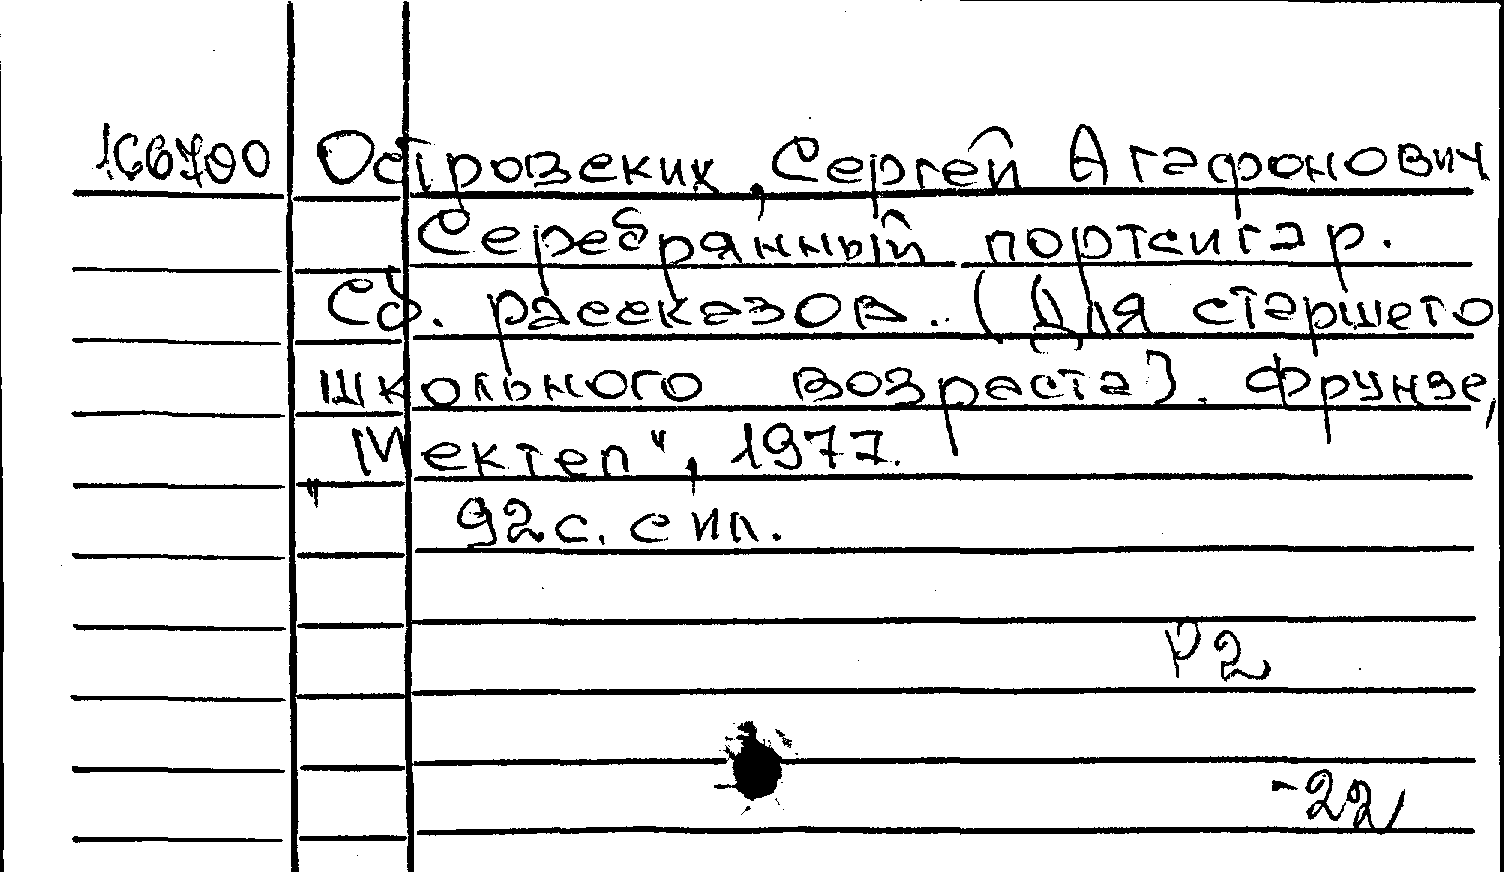 Островских, Сергей Агафонович
Серебрянный портсигар.
Сб. рассказов. (Для старшего
школьного возраста). Фрунзе,
„Мектеп“, 1977.
92с. с ил.
Р2
-22